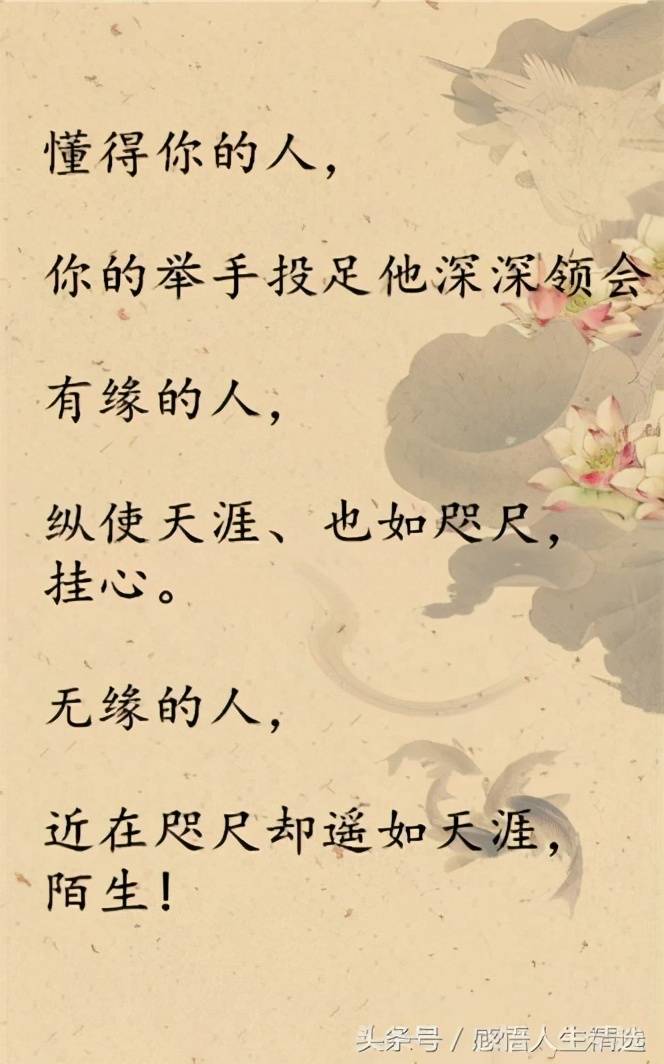 懂得你的人，
你的举手投足他深深领会
有缘的人，
纵使天涯、也如咫尺，
挂心。
无缘的人，
近在咫尺却遥如天涯，
陌生！
头条号 / 感悟人生精选